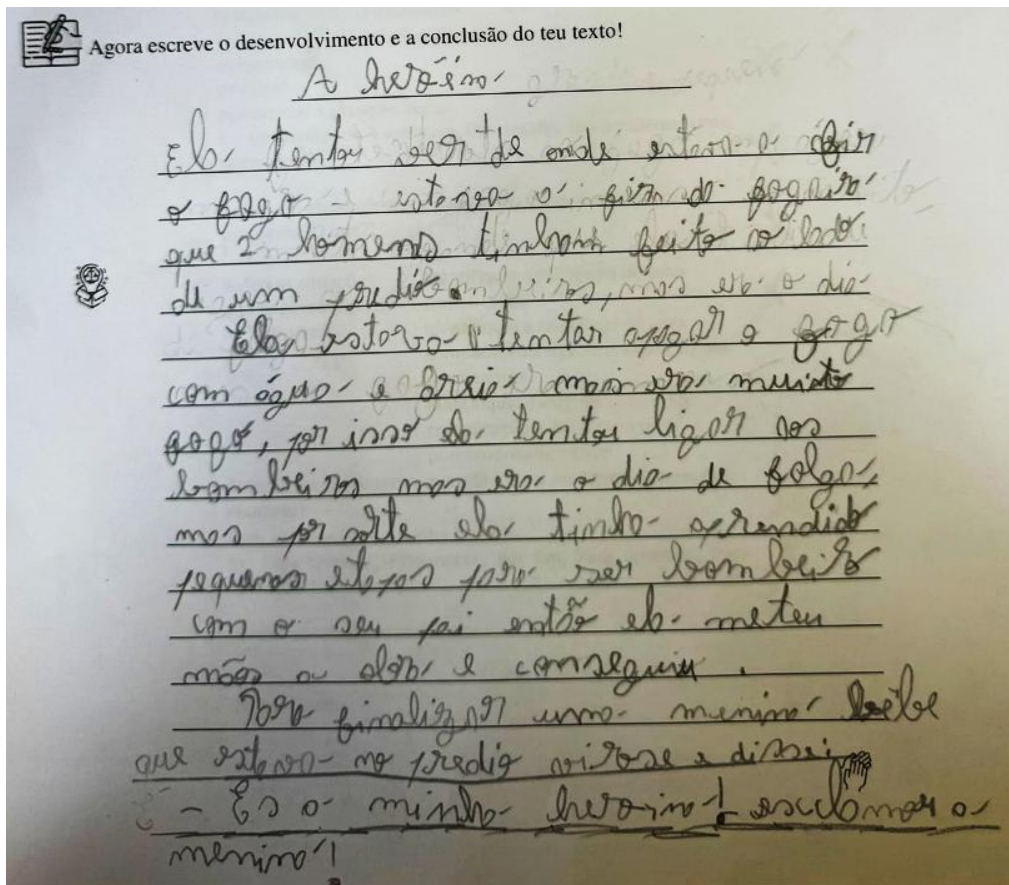 Agora escreve o desenvolvimento e a conclusão do teu texto!
A heróina
Ela tentou ver de onde estava a vir
o fogo estava a vir do fogairo
que 2 homens tinham feito ao lado
de um prédio.
Ela estava a tentar apagar o fogo
com água e areia mas era muito
fogo, por isso ela tentou ligar aos
bombeiros mas era o dia de folga,
mas por sorte ela tinha aprendido
pequenas etapas para ser bombeiro
com o seu pai então ela meteu
mãos a obra e conseguiu.
Para finalizar uma menina bêbe
que estava no predio virose e disse:
- És a minha heroina! esclamou a
menina!